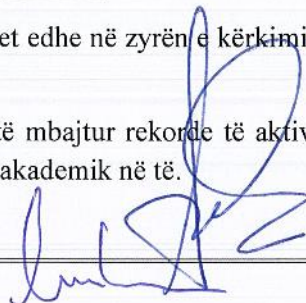 et edhe në zyrën e kërkimi
të mbajtur rekorde të aktiv
akademik në të.